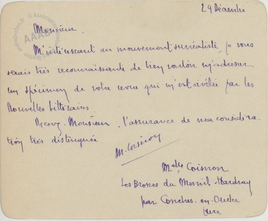 29 Décembre
Monsieur
M'intéressant au mouvement surréaliste, je vous
serais très reconnaissante de bien vouloir m'adresser
un spécimen de votre revue qui m'est révélée par les
Nouvelles Littéraires
Recevez, Monsieur, l'assurance de ma considéra
tion très distinguée
M. Coisnon
Mlle Coisnon
Les Brosses du Mesnil-Hardray
par Conches-en-Ouche
Eure